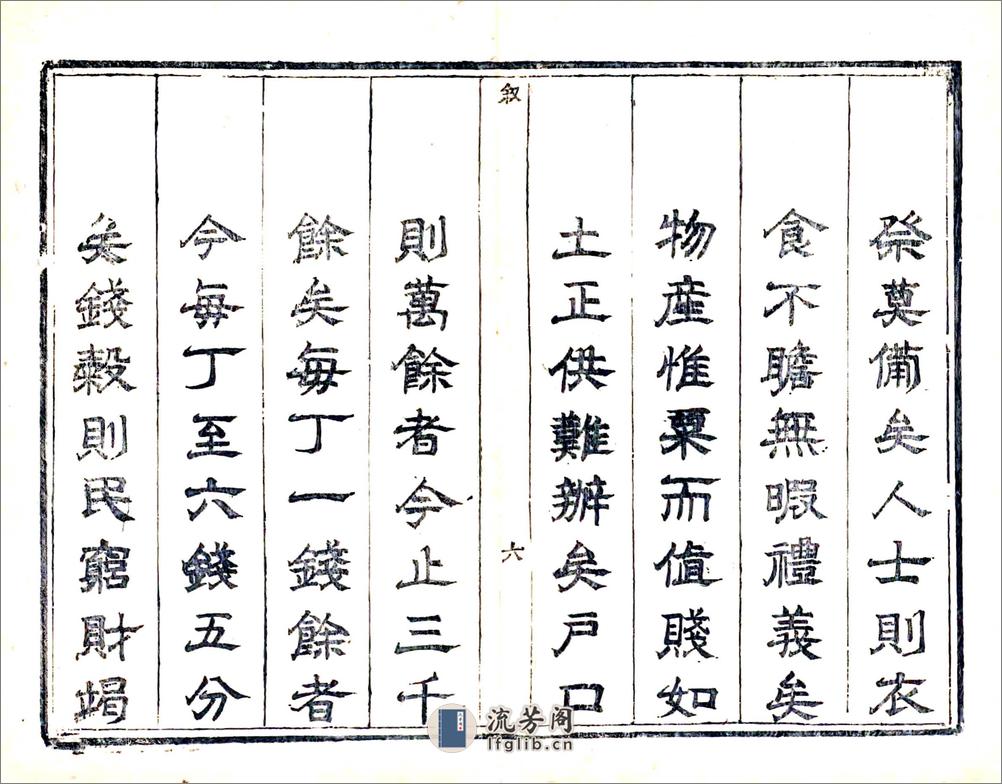 祭奠備矣人士則衣
食不贍無暇禮義矣
物産惟粟而值賤如
土正供難辦矣戸口
叙
六
則萬餘者今止三千
餘矣每丁一錢餘者
今每丁至六錢五分
矣錢糓則民窮財竭
流芳阁
lfglib.cn